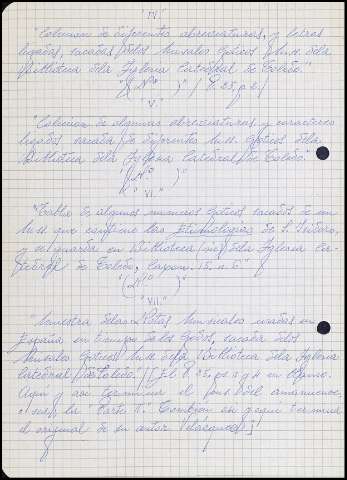 IV
"Coleccion de diferentes abreviaturas, y letras
ligadas, sacadas de los Misales Goticos de la
Bibliotheca dela Iglesia Catedral de Toledo."
(Nº )" / F. 25, p. 2 /
"V."
"Coleccion de algunas abreviaturas y caracteres
ligados sacada de diferentes goticos dela
Bibliotheca dela Iglesia Catedral de Toledo."
"(Nº )"
"VI"
"Tabla de algunos numeros goticos sacados de un
que contiene las Etimologias de S. Isidoro,
y se guarda en Bibliotheca dela Iglesia Ca-
tedral de Toledo, Caxon. 15, n. 6"
"(Nº )"
"VII."
"Muestra delas Notas Musicales usadas en
España en tiempo de los Godos, sacada delos
Misales Goticos dela Bibliotheca dela Iglesia
Catedral de Toledo."
Aqui y asi termina el
o sea, la "Parte I". Tambien en termina
el original de su autor Velazquez]